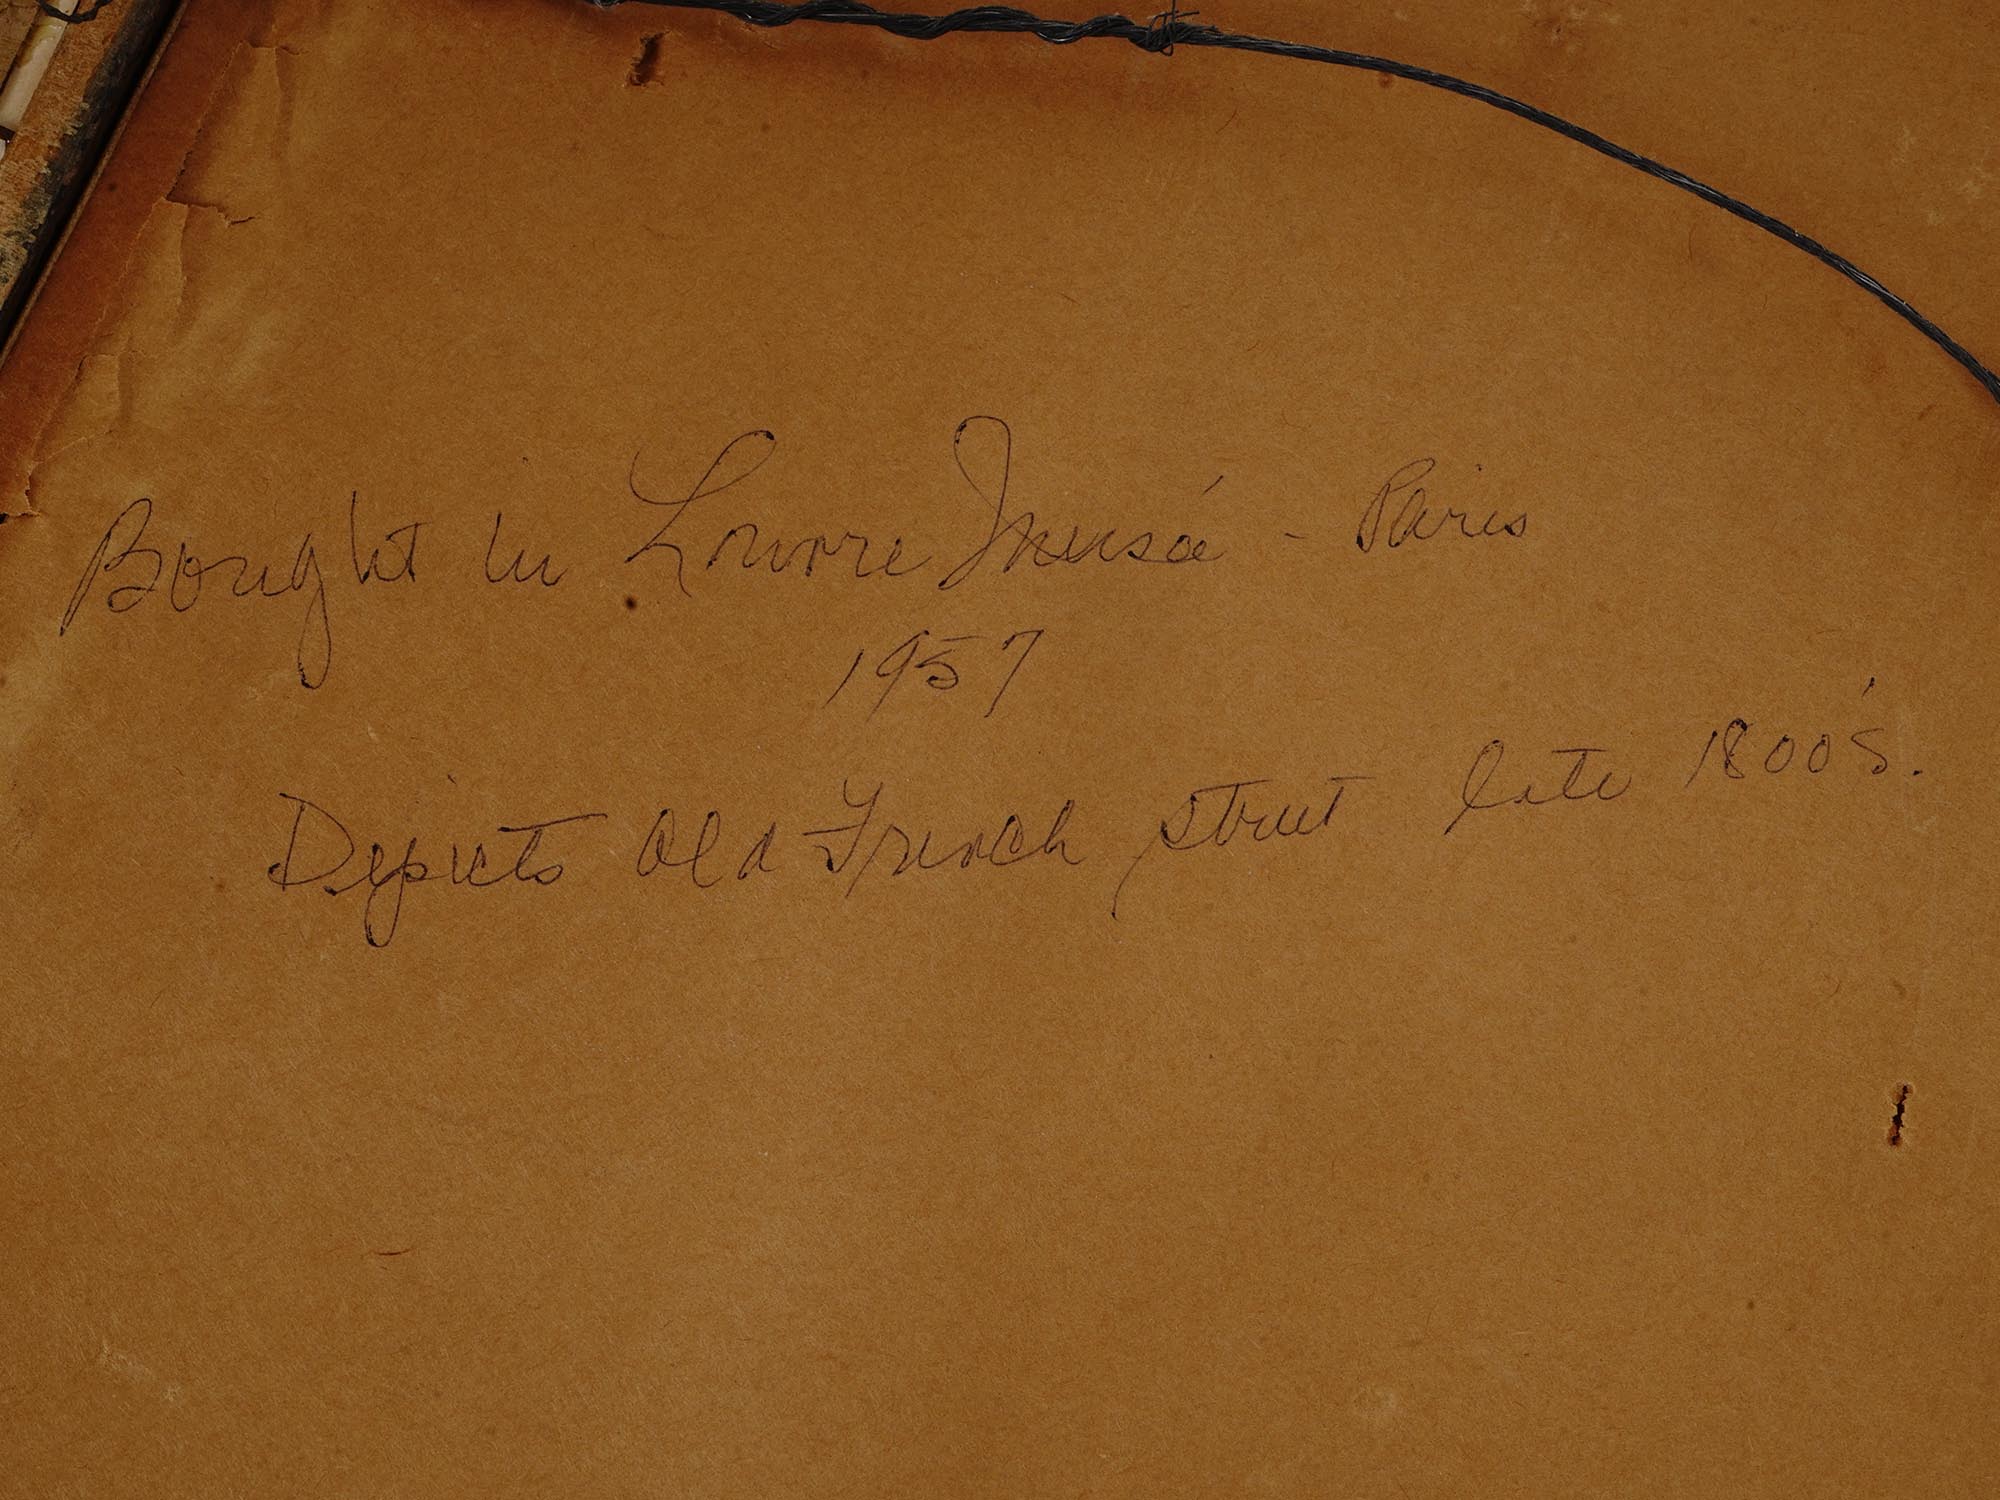 Bought in Louvre Musée - Paris
1957
Depicts Old French street late 1800's.